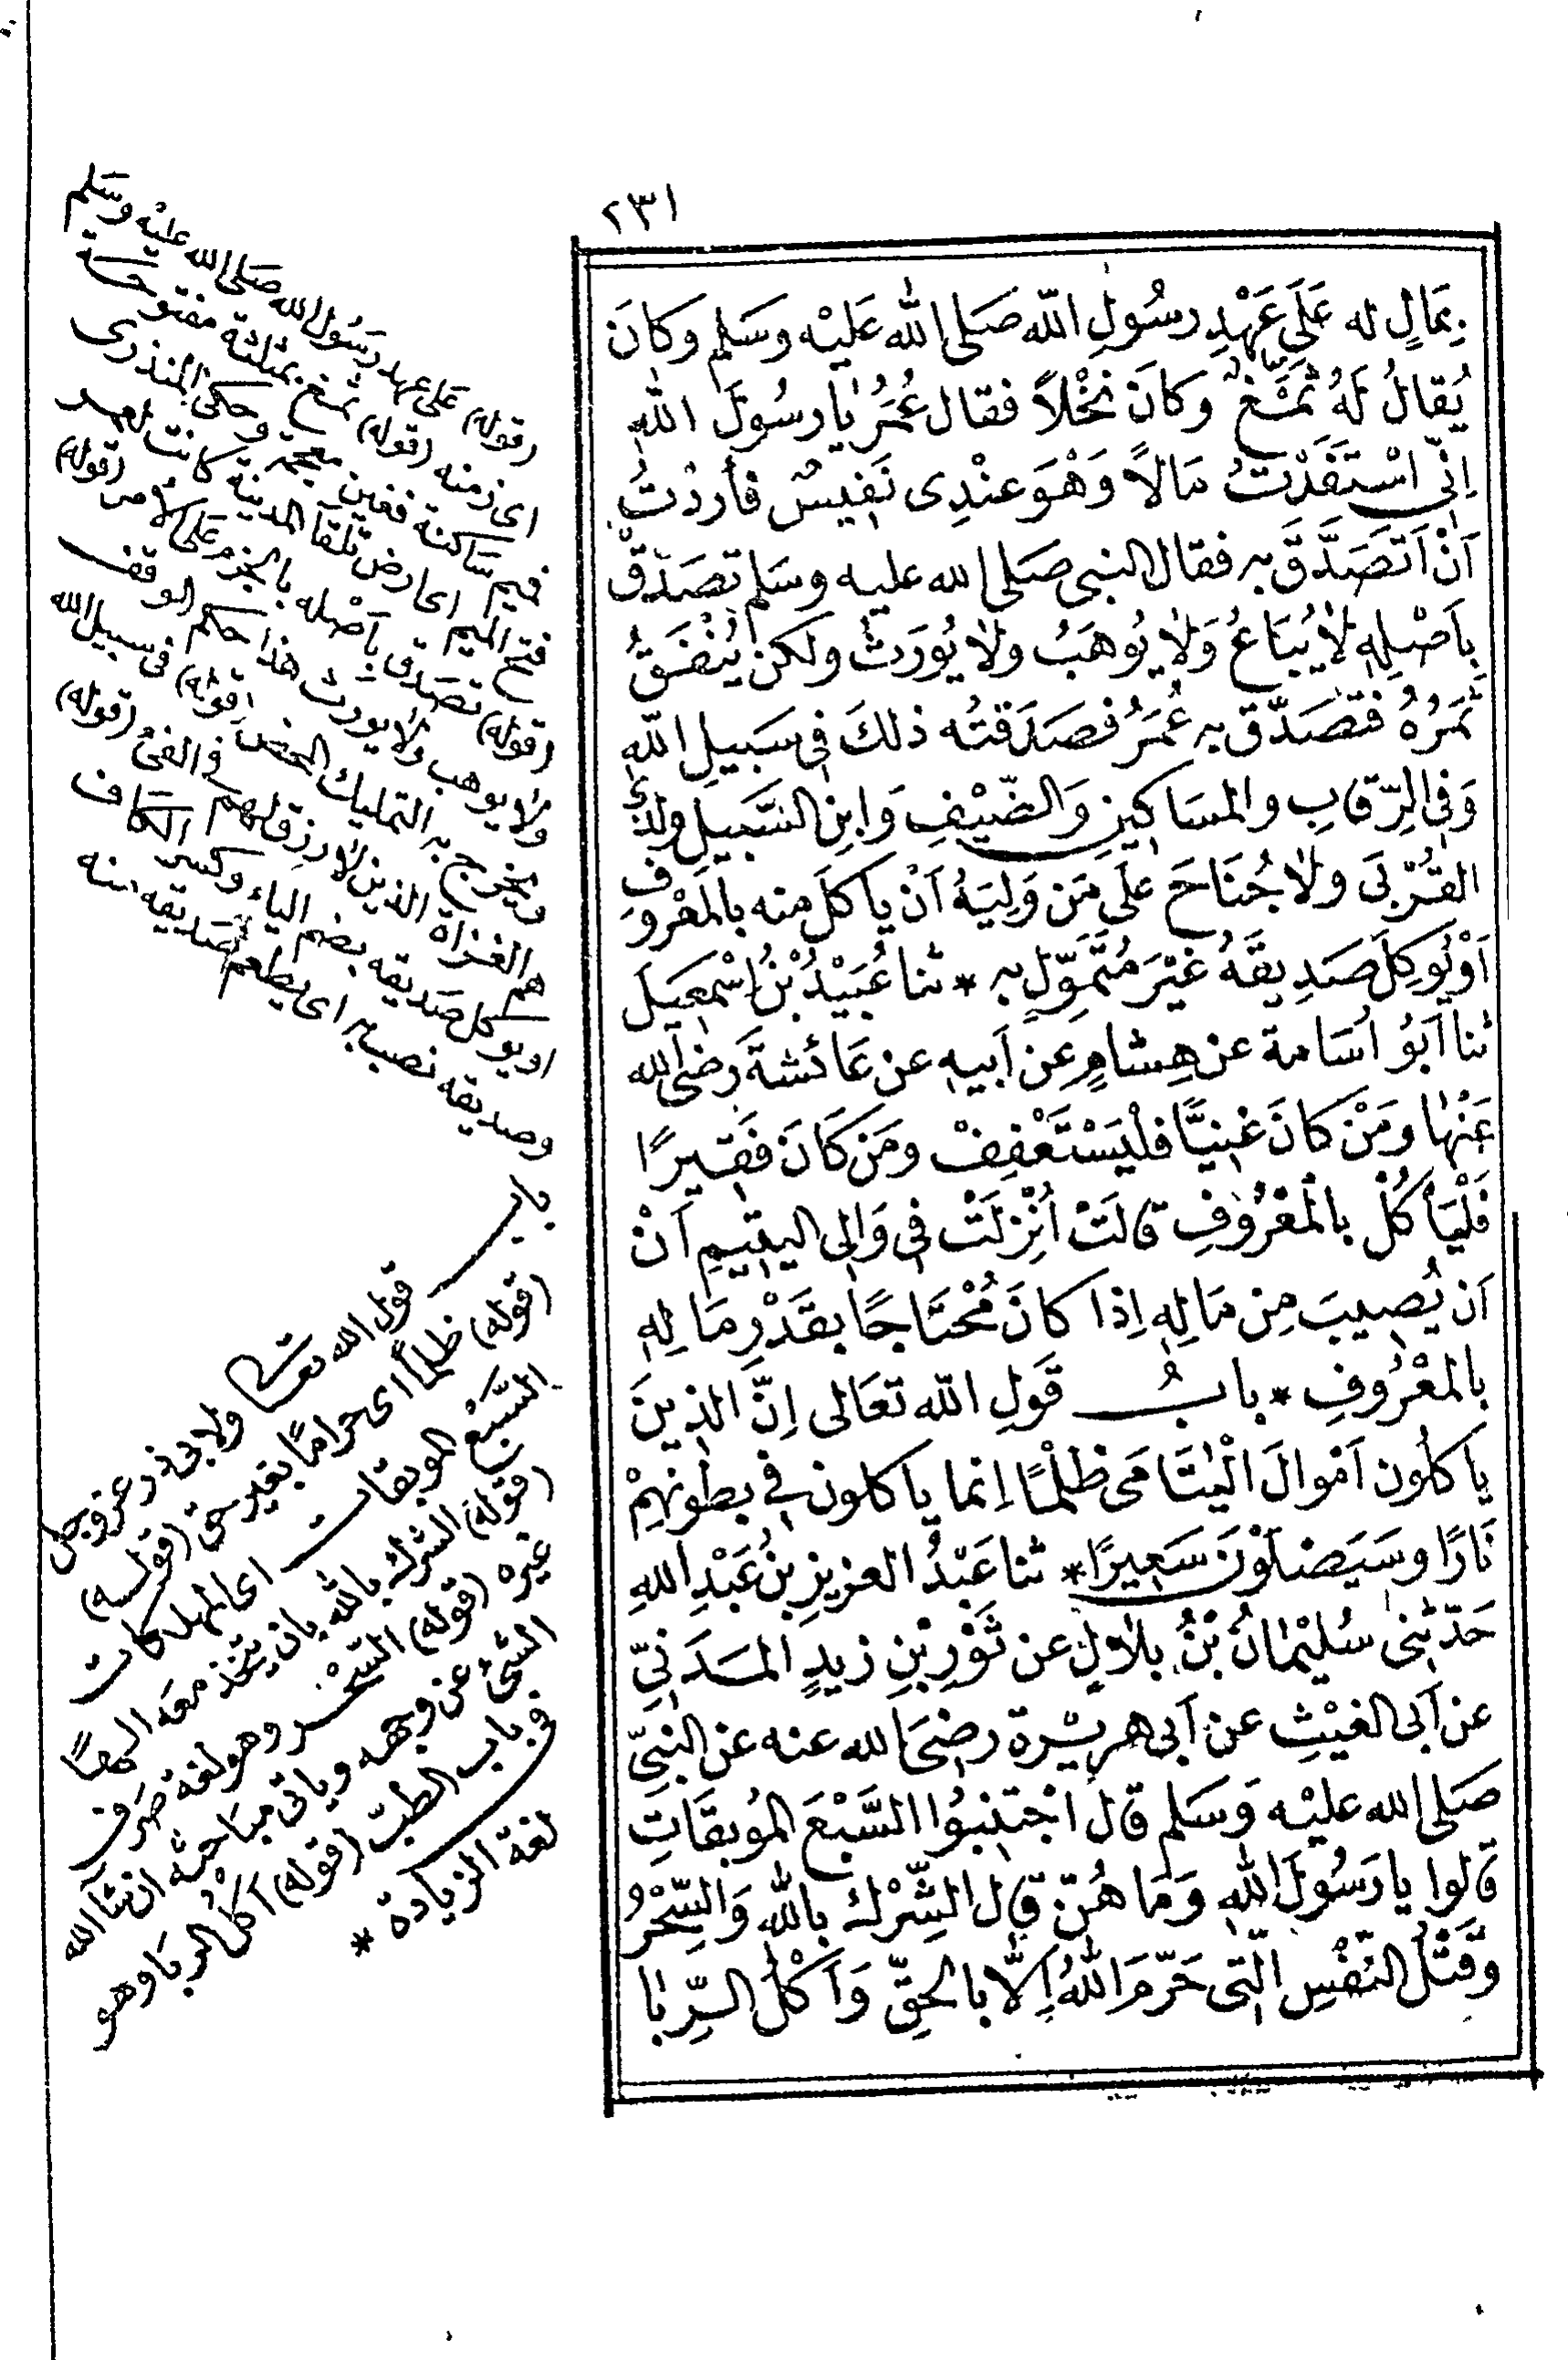 ٢٣١
بِمَالٍ له عَلَى عَهْدِ رسُولِ اللّه صَلى الله عَليْه وسَلم وَكانَ
يُقالُ لَهُ ثَمْغٌ وَكانَ نَخْلاً فقال عُمَرُ يا رسُولَ اللهِ
اِنّى اسْتَفَدْتُ مَالاً وَهْوَ عنْدِى نَفِيسٌ فأردْتُ
اَنْ اَتَصَدَّقَ به فقال النبى صَلى الله عليه وسَلم تصَدّقْ
بِاَصْلِهِ لاَ يُبَاعُ وَلاَ يُوهَبُ ولاَ يُورَثُ ولكن يُنْفَقُ
ثَمَرُهُ فتَصَدّق به عُمَرُ فصَدَقتُه ذلكَ فى سَبِيلِ اللّهِ
وَفِى الرّقابِ والمسَاكِينِ وَالضّيْفِ وَابنِ السَّبِيلِ ولِذِى
القُرْبَى ولاَ جُنَاحَ علَى مَن وَلِيَهُ اَنْ ياكلَ منه بالمَعْرُوفِ
اَوْ يُوكِلَ صَدِيقَهُ غيْرَ مُتَمَوِّلٍ به * ثنا عُبَيْدُ بْنُ اِسْمٰعِيلَ
ثنا اَبُو اُسَامة عن هِشامٍ عن اَبيهِ عن عَائشةَ رَضى الله
عَنْهَا ومَنْ كانَ غنِيًّا فلْيَسْتَعْفِفْ ومَن كَانَ فَقِيرًا
فَلْيَأكُلْ بالمَعْرُوفِ قالَتْ اُنْزِلَتْ فى وَالِى اليتِيمِ اَنْ
اَن يُصِيبَ مِن مَالِهِ اِذا كانَ مُحْتَاجًا بقَدْرِ مَا لِهِ
بالمعْرُوفِ * بابُ قَولِ اللّه تعَالى اِنَّ الذِينَ
ياكلُون اَمْوالَ الْيَتَامَى ظلْمًا اِنما ياكلون فى بطونِهِمْ
نَارًا وسَيَصْلَوْنَ سَعِيرًا * ثنا عَبْدُ العزيزِ بنُ عَبْدِ اللهِ
حَدّثنِى سُليْمانُ بْنُ بلاَلٍ عن ثَوْرِ بْنِ زيدٍ المدَنِىِّ
عن اَبى الغيْثِ عن اَبى هريْرة رضىَ الله عنه عن النبىّ
صَلى الله عليْه وَسَلم قال اجْتنِبُوا السَّبْعَ الموُبقَاتِ
قالوا يا رَسُولَ اللهِ وَمَا هُنّ قال الشِّرْكُ باللّه وَالسِّحْرُ
وَقَتْلُ النّفْسِ الّتى حَرّمَ اللهُ اِلّا بالحقِّ وَاَكلُ الرِّبَا
(قوله) عَلى عهد رسُول الله صَلى الله عليْه وسَلم
اى زمنه (قوله) ثمغ بمثلثة مفتوحة
فميم ساكنة فغين معجمة وحكى المنذرى
فتح الميم اى ارض تلقا المدينة كانت لعمر
(قوله) تصدق باَصْله بالجزم على الامر (قوله)
ولا يوهب ولا يورث هذا حكم الوقف
ويخرج به التمليك المحض (قوله) فى سبيل الله
هم الغزاة الذين لا رزق لهم فى الفئ (قوله)
او يوكل صديقه بضم الياء وكسر الكاف
وصديقه نصب به اى يطعم صديقه منه
باب قول الله تعالى ولابى ذر عز وجل
(قوله) ظلماً اى حراماً بغير حق (قوله)
السَّبْع الموبقات اى المهلكات
(قوله) الشرك بالله بان يتخذ معَه الهاً
غيره (قوله) السّحْر وهو لغة صَرف
الشئ عن وجهه وياتى مباحثه ان شآ الله
فى باب الطبّ (قوله) اَكل الربا وهو
لغة الزيادة *